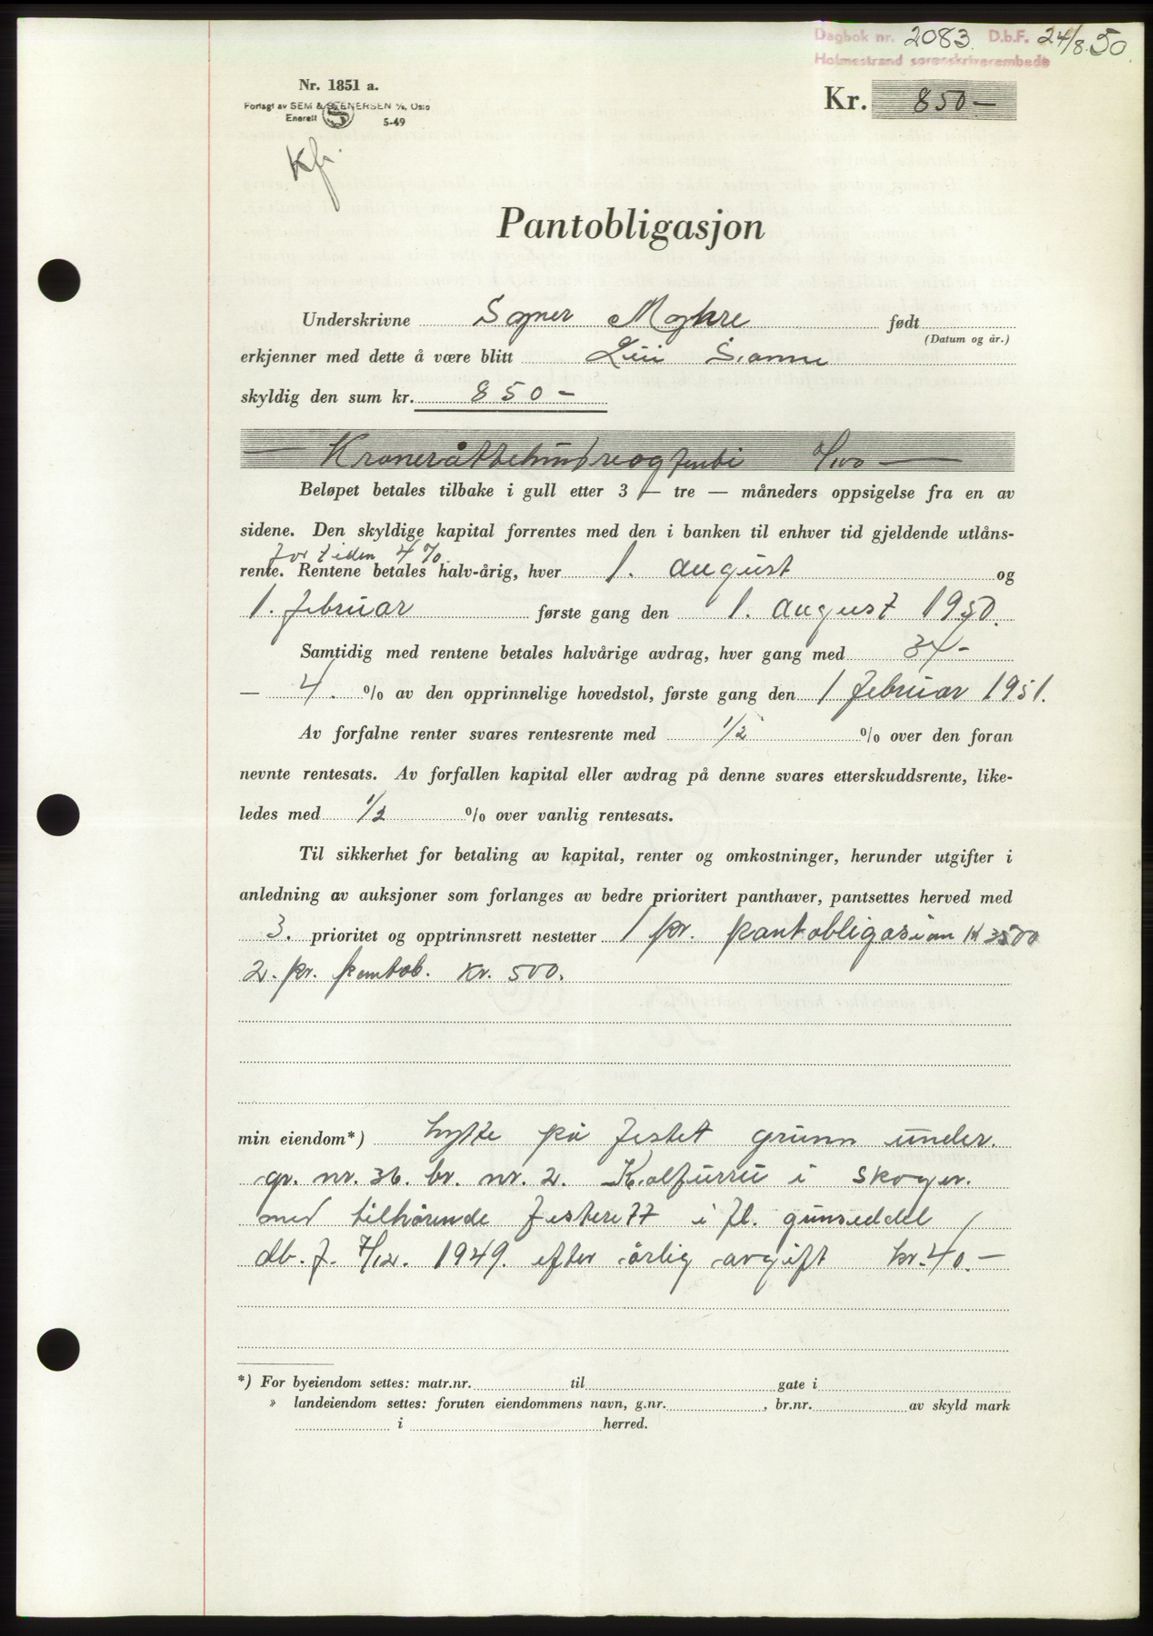 Dagbok nr. 2083. D.b.F. 24/8.50.
Holmestrand sorenskriverembede
Nr. 1851 a.
Forlagt av SEM & STENERSEN A/S, Oslo
Enerett S 5-49
Kr. 850 —
Kfr.
Pantobligasjon
Underskrivne Myhre født
(Datum og år.)
erkjenner med dette å være blitt
skyldig den sum kr. 850 —
— Kroneråttehundreogfemti 0/100 —
Beløpet betales tilbake i gull etter 3 — tre — måneders oppsigelse fra en av
sidene. Den skyldige kapital forrentes med den i banken til enhver tid gjeldende utlåns-
for tiden 4 %
rente. Rentene betales halv-årig, hver 1. august og
1. februar første gang den 1. august 1950.
Samtidig med rentene betales halvårige avdrag, hver gang med 34 —
— 4. % av den opprinnelige hovedstol, første gang den 1 februar 1951.
Av forfalne renter svares rentesrente med 1/2 % over den foran
nevnte rentesats. Av forfallen kapital eller avdrag på denne svares etterskuddsrente, like-
ledes med 1/2 % over vanlig rentesats.
Til sikkerhet for betaling av kapital, renter og omkostninger, herunder utgifter i
anledning av auksjoner som forlanges av bedre prioritert panthaver, pantsettes herved med
3. prioritet og opptrinnsrett nestetter 1 pr. pantobligasion kr 3500
2. pr. pantob. kr. 500.
min eiendom*) hytte på festet grunn under.
gr. nr. 36. br. nr. 2. i Skoger.
med tilhørende festerett i fl.
db. f. 7/12. 1949. efter årlig avgift kr. 40. —
*) For byeiendom settes: matr.nr. til gate i
» landeiendom settes: foruten eiendommens navn, g.nr. , br.nr. av skyld mark
i herred.